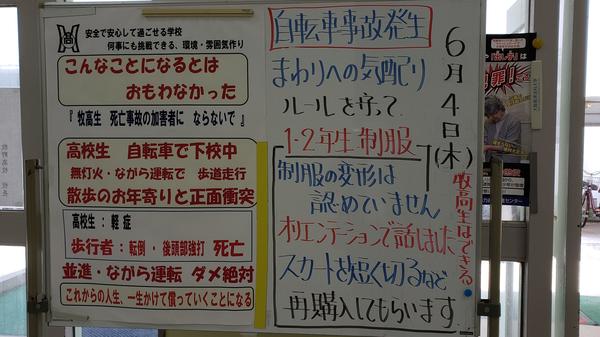 安全で安心して過ごせる学校
何事にも挑戦できる、環境・雰囲気作り
こんなことになるとは
おもわなかった
『 牧高生 死亡事故の加害者に ならないで 』
高校生 自転車で下校中
無灯火・ながら運転で 歩道走行
散歩のお年寄りと正面衝突
高校生：軽症
歩行者：転倒・後頭部強打 死亡
並進・ながら運転 ダメ絶対
これからの人生、一生かけて償っていくことになる
自転車事故発生
まわりへの気配り
ルールを守って
1・2年生制服
制服の変形は
認めていません
オリエンテーションで話しました
スカートを短く切るなど
再購入してもらいます
6月4日(木)
牧高生はできる